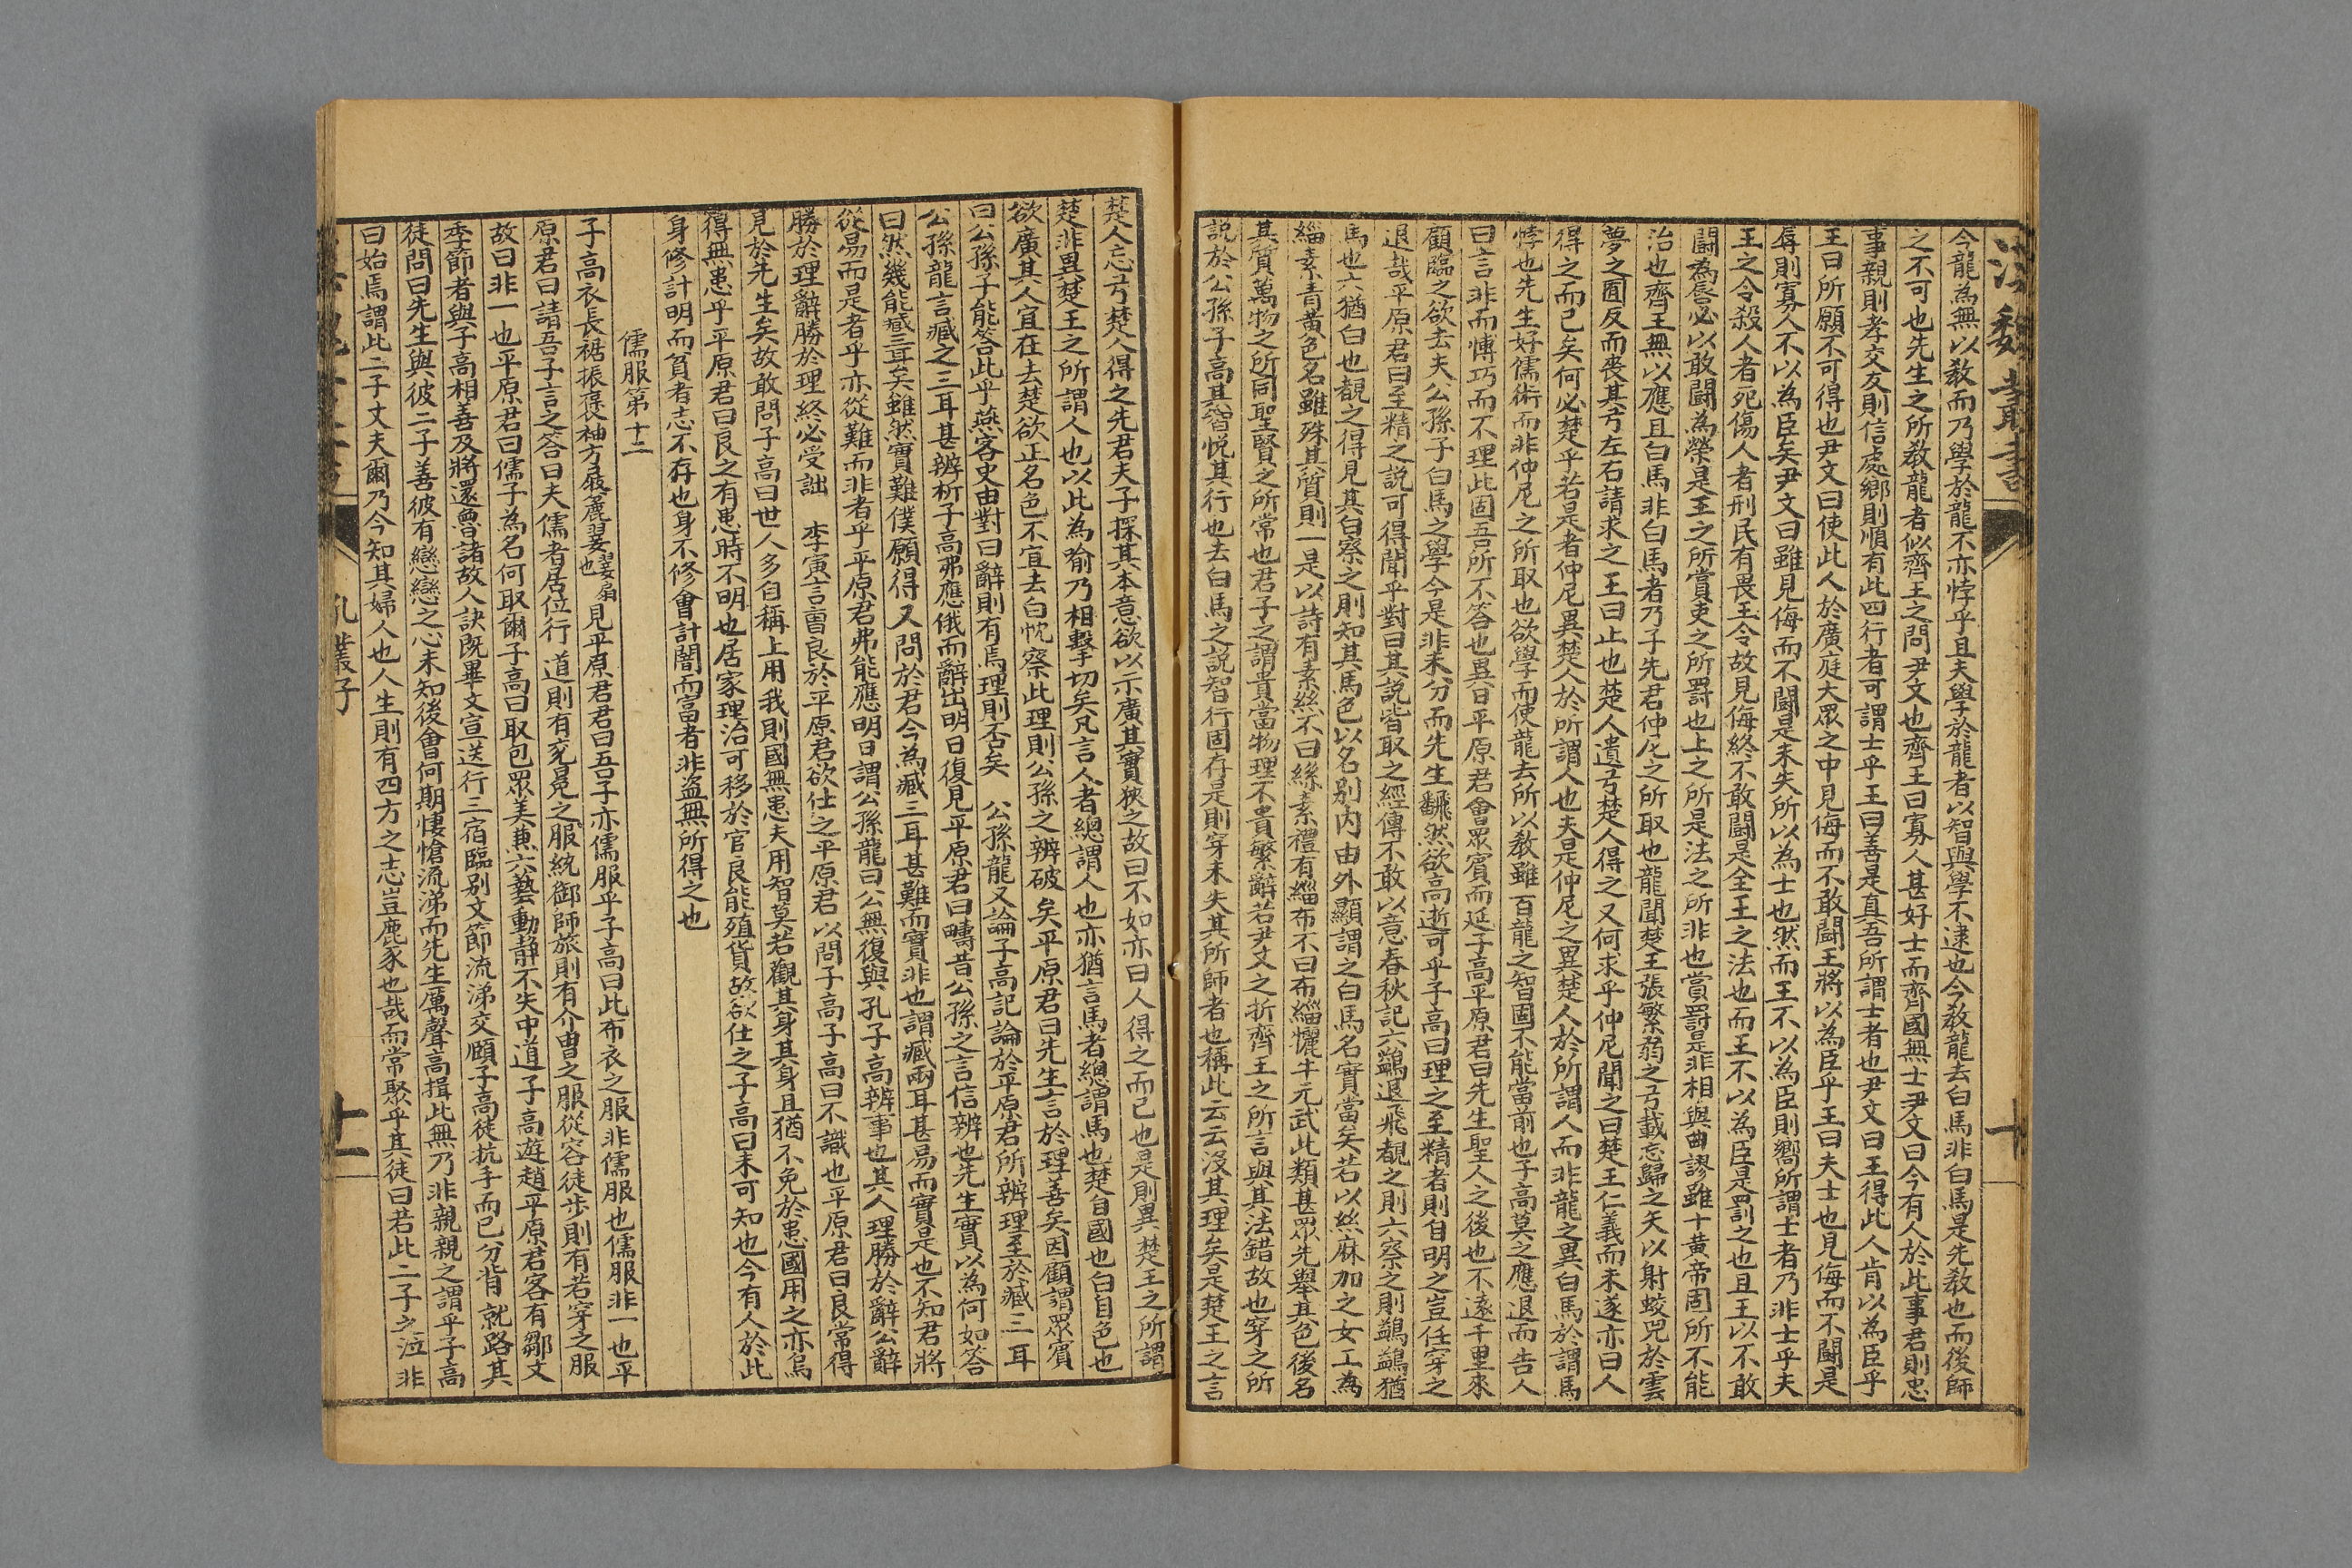 漢魏叢書
十
今龍為無以敎而乃學於龍不亦悖乎且夫學於龍者以智與學不逮也今敎龍去白馬非白馬是先敎也而後師
之不可也先生之所敎龍者似齊王之問尹文也齊王曰寡人甚好士而齊國無士尹文曰今有人於此事君則忠
事親則孝交友則信處鄉則順有此四行者可謂士乎王曰善是真吾所謂士者也尹文曰王得此人肯以為臣乎
王曰所願不可得也尹文曰使此人於廣庭大眾之中見侮而不敢鬪王將以為臣乎王曰夫士也見侮而不鬪是
辱則寡人不以為臣矣尹文曰雖見侮而不鬪是未失所以為士也然而王不以為臣則嚮所謂士者乃非士乎夫
王之令殺人者死傷人者刑民有畏王令故見侮終不敢鬪是全王之法也而王不以為臣是罰之也且王以不敢
鬪為辱必以敢鬪為榮是王之所賞吏之所罰也上之所是法之所非也賞罰是非相與曲謬雖十黃帝固所不能
治也齊王無以應且白馬非白馬者乃子先君仲尼之所取也龍聞楚王張繁弱之弓載忘歸之矢以射蛟兕於雲
夢之囿反而喪其弓左右請求之王曰止也楚人遺弓楚人得之又何求乎仲尼聞之曰楚王仁義而未遂亦曰人
得之而已矣何必楚乎若是者仲尼異楚人於所謂人也夫是仲尼之異楚人於所謂人而非龍之異白馬於謂馬
悖也先生好儒術而非仲尼之所取也欲學而使龍去所以敎雖百龍之智固不能當前也子高莫之應退而告人
曰言非而博巧而不理此固吾所不答也異日平原君會眾賓而延子高平原君曰先生聖人之後也不遠千里來
顧臨之欲去夫公孫子白馬之學今是非未分而先生飜然欲高逝可乎子高曰理之至精者則自明之豈任穿之
退哉平原君曰至精之說可得聞乎對曰其說皆取之經傳不敢以意春秋記六鷁退飛覩之則六察之則鷁鷁猶
馬也六猶白也覩之得見其白察之則知其馬色以名別內由外顯謂之白馬名實當矣若以絲麻加之女工為
緇素青黃色名雖殊其質則一是以詩有素絲不曰絲素禮有緇布不曰布緇犡牛元武此類甚眾先舉其色後名
其質萬物之所同聖賢之所常也君子之謂貴當物理不貴繁辭若尹文之折齊王之所言與其法錯故也穿之所
說於公孫子高其智悅其行也去白馬之說智行固存是則穿未失其所師者也稱此云云沒其理矣是楚王之言
楚人忘弓楚人得之先君夫子探其本意欲以示廣其實狹之故曰不如亦曰人得之而已也是則異楚王之所謂
楚非異楚王之所謂人也以此為喻乃相擊切矣凡言人者總謂人也亦猶言馬者總謂馬也楚自國也白自色也
欲廣其人宜在去楚欲正名色不宜去白忱察此理則公孫之辨破矣平原君曰先生言於理善矣因顧謂眾賓
曰公孫子能答此乎燕客史由對曰辭則有焉理則否矣　公孫龍又論子高記論於平原君所辨理至於臧三耳
公孫龍言臧之三耳甚辨析子高弗應俄而辭出明日復見平原君曰疇昔公孫之言信辨也先生實以為何如答
曰然幾能臧三耳矣雖然實難僕願得又問於君今為臧三耳甚難而實非也謂臧兩耳甚易而實是也不知君將
從易而是者乎亦從難而非者乎平原君弗能應明日謂公孫龍曰公無復與孔子高辨事也其人理勝於辭公辭
勝於理辭勝於理終必受詘　李寅言曹良於平原君欲仕之平原君以問子高子高曰不識也平原君曰良常得
見於先生矣故敢問子高曰世人多自稱上用我則國無患夫用智莫若觀其身其身且猶不免於患國用之亦烏
得無患乎平原君曰良之有患時不明也居家理治可移於官良能殖貨故欲仕之子高曰未可知也今有人於此
身修計明而貧者志不存也身不修會計闇而富者非盜無所得之也
儒服第十二
子高衣長裾振褎袖方屐麄翣翣扇也見平原君君曰吾子亦儒服乎子高曰此布衣之服非儒服也儒服非一也平
原君曰請吾子言之答曰夫儒者居位行道則有冕冕之服統御師旅則有介冑之服從容徒步則有若穿之服
故曰非一也平原君曰儒子為名何取爾子高曰取包眾美兼六藝動靜不失中道子高遊趙平原君客有鄒文
季節者與子高相善及將還魯諸故人訣既畢文宣送行三宿臨別文節流涕交頤子高徒抗手而已分背就路其
徒問曰先生與彼二子善彼有戀戀之心未知後會何期悽愴流涕而先生厲聲高揖此無乃非親親之謂乎子高
曰始焉謂此二子丈夫爾乃今知其婦人也人生則有四方之志豈鹿豕也哉而常聚乎其徒曰若此二子之泣非
孔叢子
十一